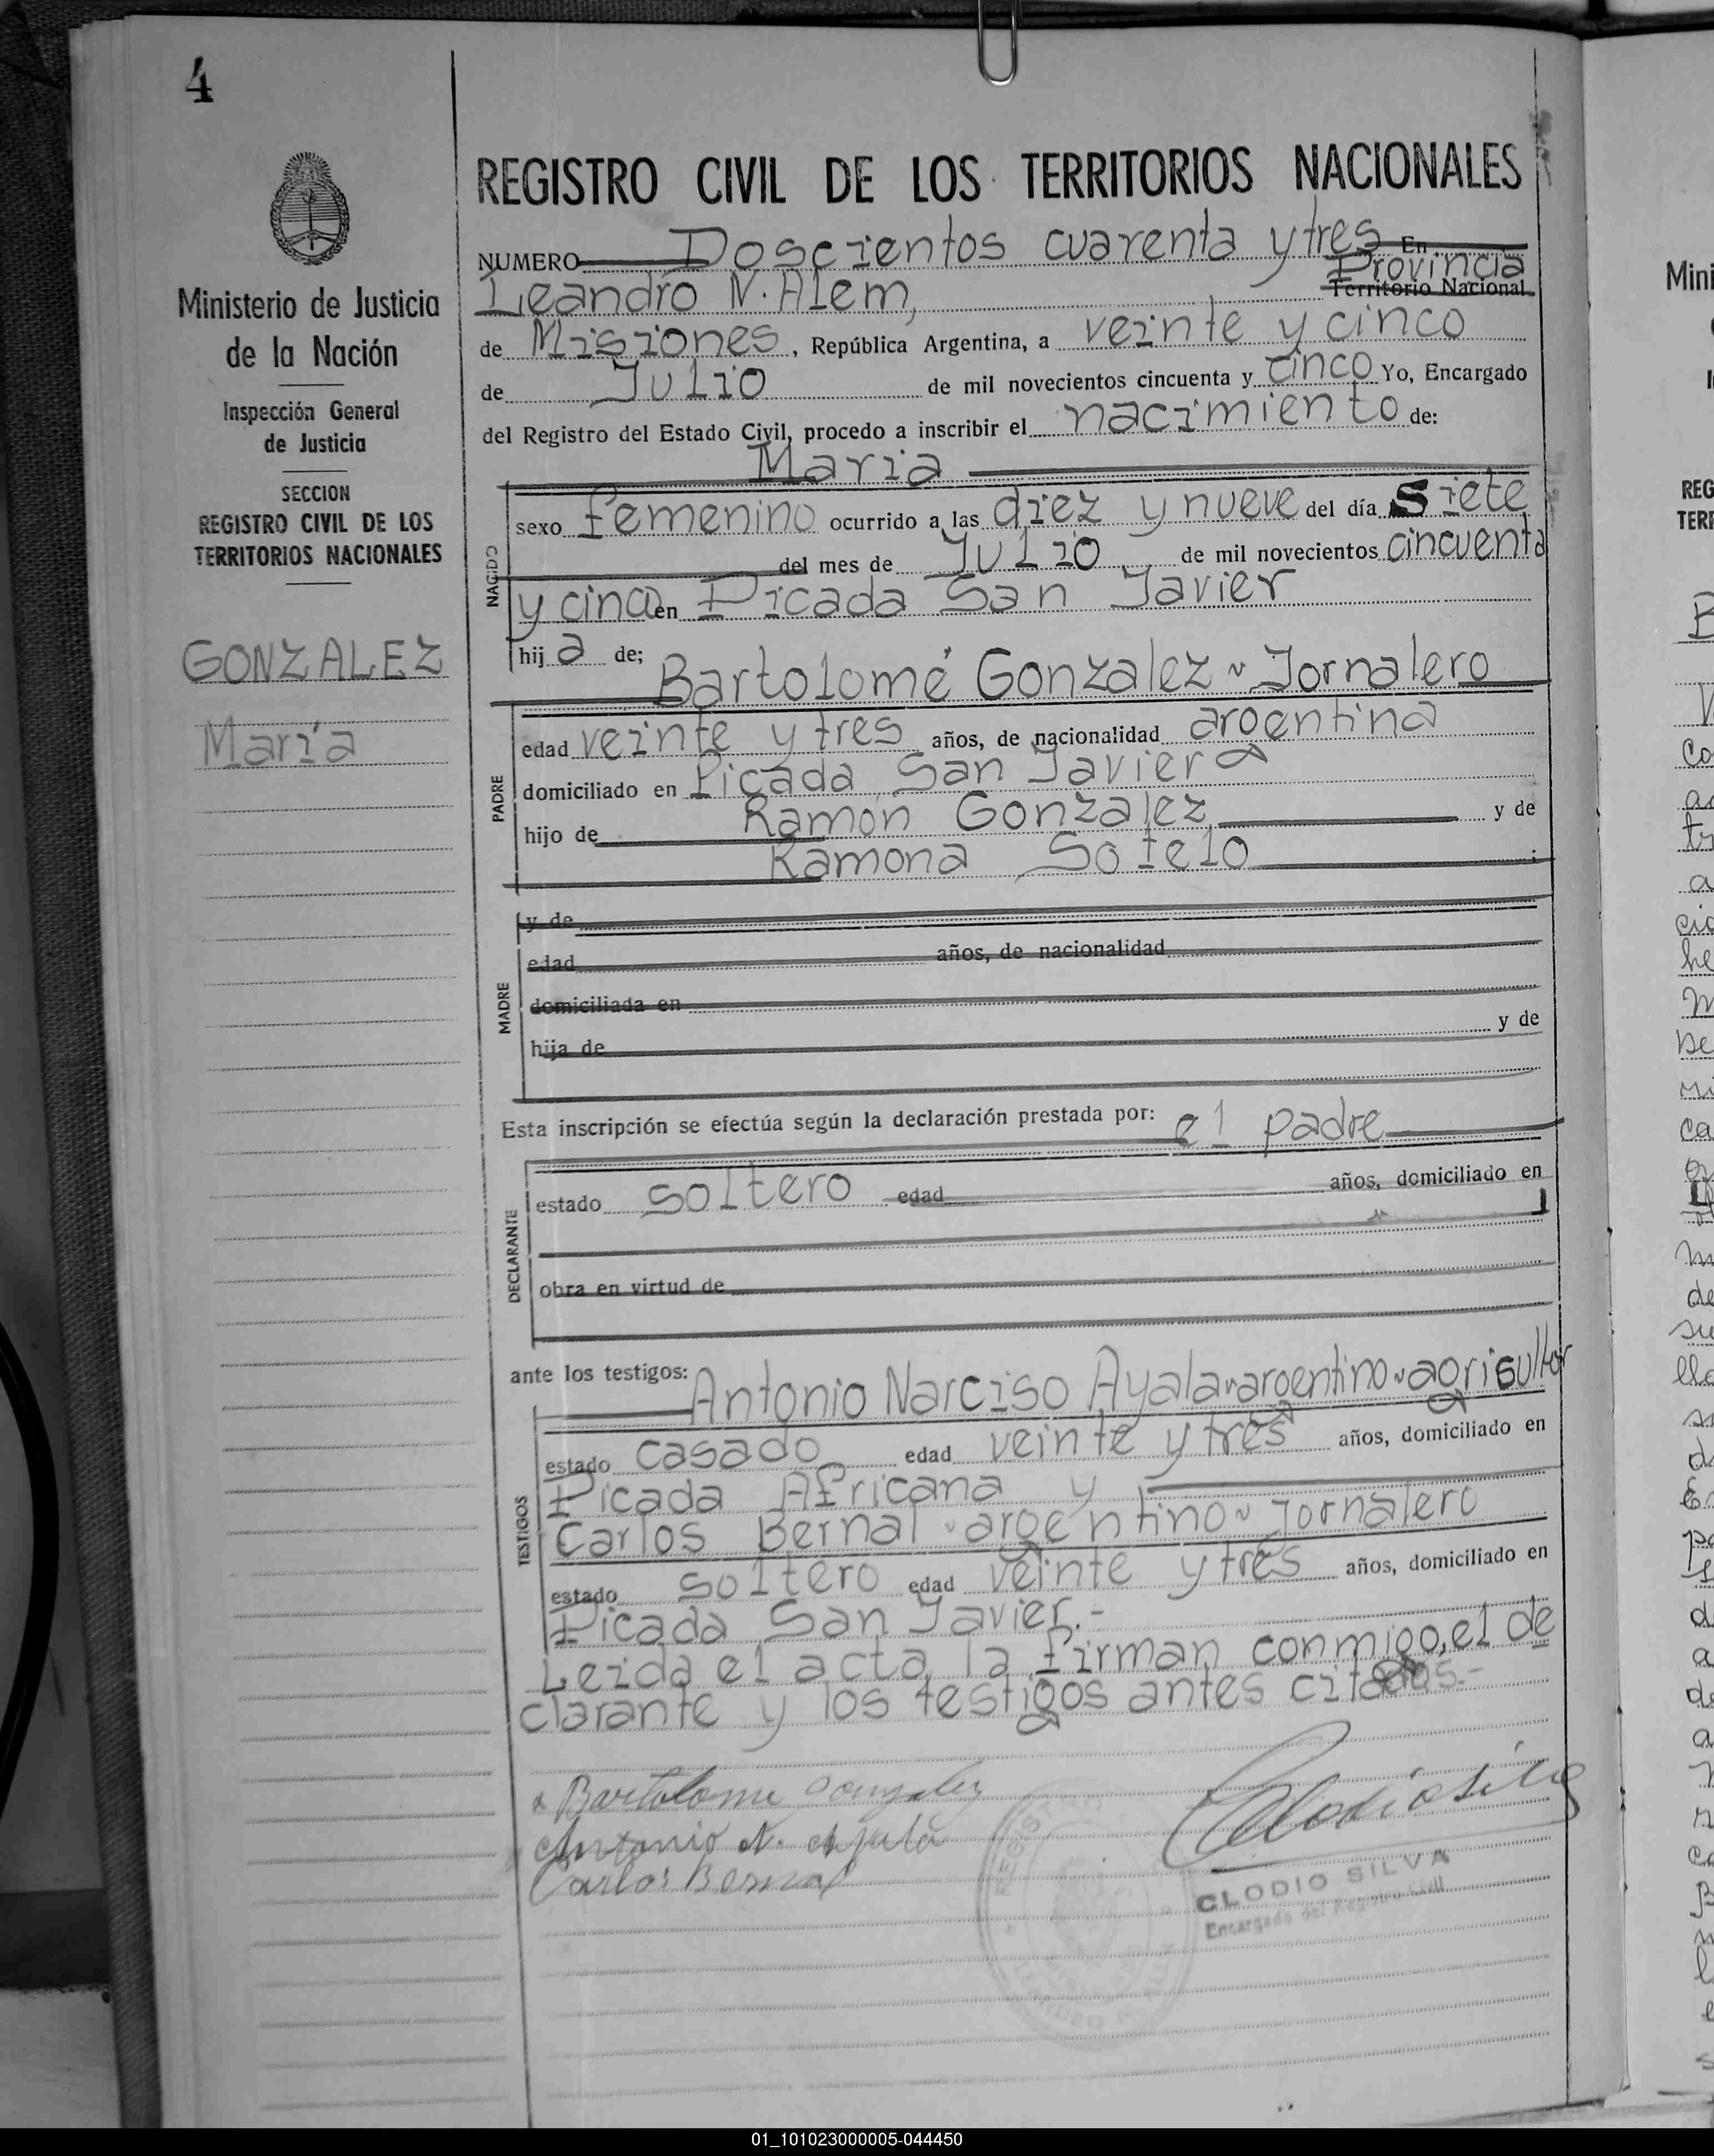 4
Ministerio de Justicia
de la Nación
Inspección General
de Justicia
SECCION
REGISTRO CIVIL DE LOS
TERRITORIOS NACIONALES
GONZALEZ
María
REGISTRO CIVIL DE LOS TERRITORIOS NACIONALES
NUMERO Doscientos cuarenta y tres En
Provincia
Leandro N. Alem, Territorio Nacional
de Misiones, República Argentina, a veinte y cinco
de Julio de mil novecientos cincuenta y cinco Yo, Encargado
del Registro del Estado Civil, procedo a inscribir el nacimiento de:
Maria
NACIDO
sexo femenino ocurrido a las diez y nueve del día siete
del mes de Julio de mil novecientos cincuenta
y cinco en Picada San Javier
hij a de;
Bartolomé Gonzalez ~ Jornalero
PADRE
edad veinte y tres años, de nacionalidad argentina
domiciliado en Picada San Javier
hijo de Ramón Gonzalez y de
Ramona Sotelo ;
MADRE
y de
edad años, de nacionalidad
domiciliada en
hija de y de
Esta inscripción se efectúa según la declaración prestada por: el padre
DECLARANTE
estado soltero edad años, domiciliado en
obra en virtud de
ante los testigos: Antonio Narciso Ayala ~ argentino ~ agrisultor
TESTIGOS
estado casado edad veinte y tres años, domiciliado en
Picada Africana y
Carlos Bernal ~ argentino ~ jornalero
estado soltero edad veinte y tres años, domiciliado en
Picada San Javier.-
Leida el acta, la firman conmigo, el de
clarante y los testigos antes citados.-
x Bartolome gonzalez
Antonio N. Ayala
Carlos Bernal
Clodio Silva
CLODIO SILVA
Encargado del Registro Civil
REGISTRO
01_101023000005-044450